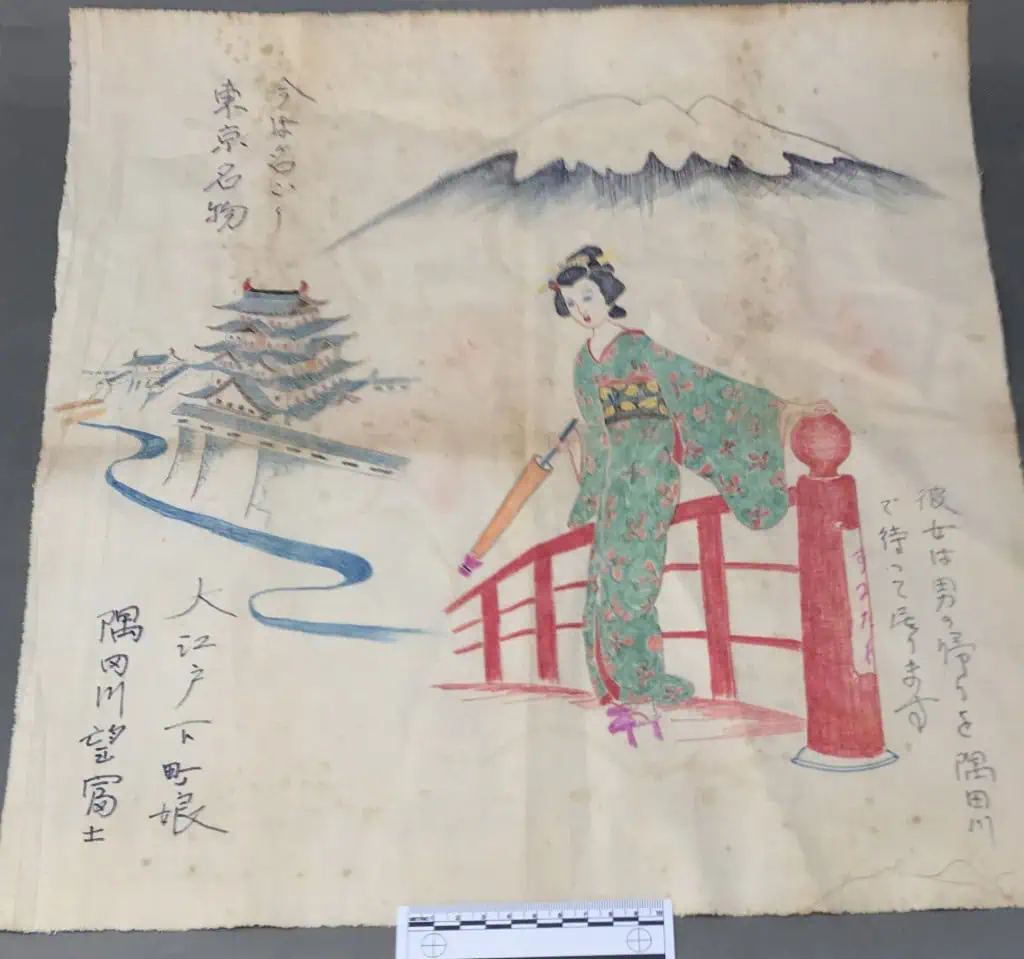 彼女は男の帰りを隅田川
で待って居ります
今は
東京名物
大江戸下町娘
隅田川望富士